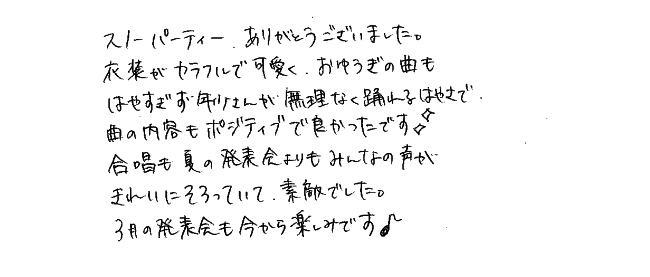 スノーパーティー、ありがとうございました。
衣装がカラフルで可愛く、おゆうぎの曲も
はやすぎず年少さんが無理なく踊れるはやさで、
曲の内容もポジティブで良かったです✧
合唱も夏の発表会よりもみんなの声が
きれいにそろっていて、素敵でした。
3月の発表会も今から楽しみです♪